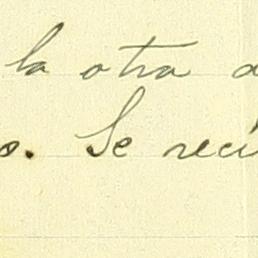 la otra a
o. Se reci